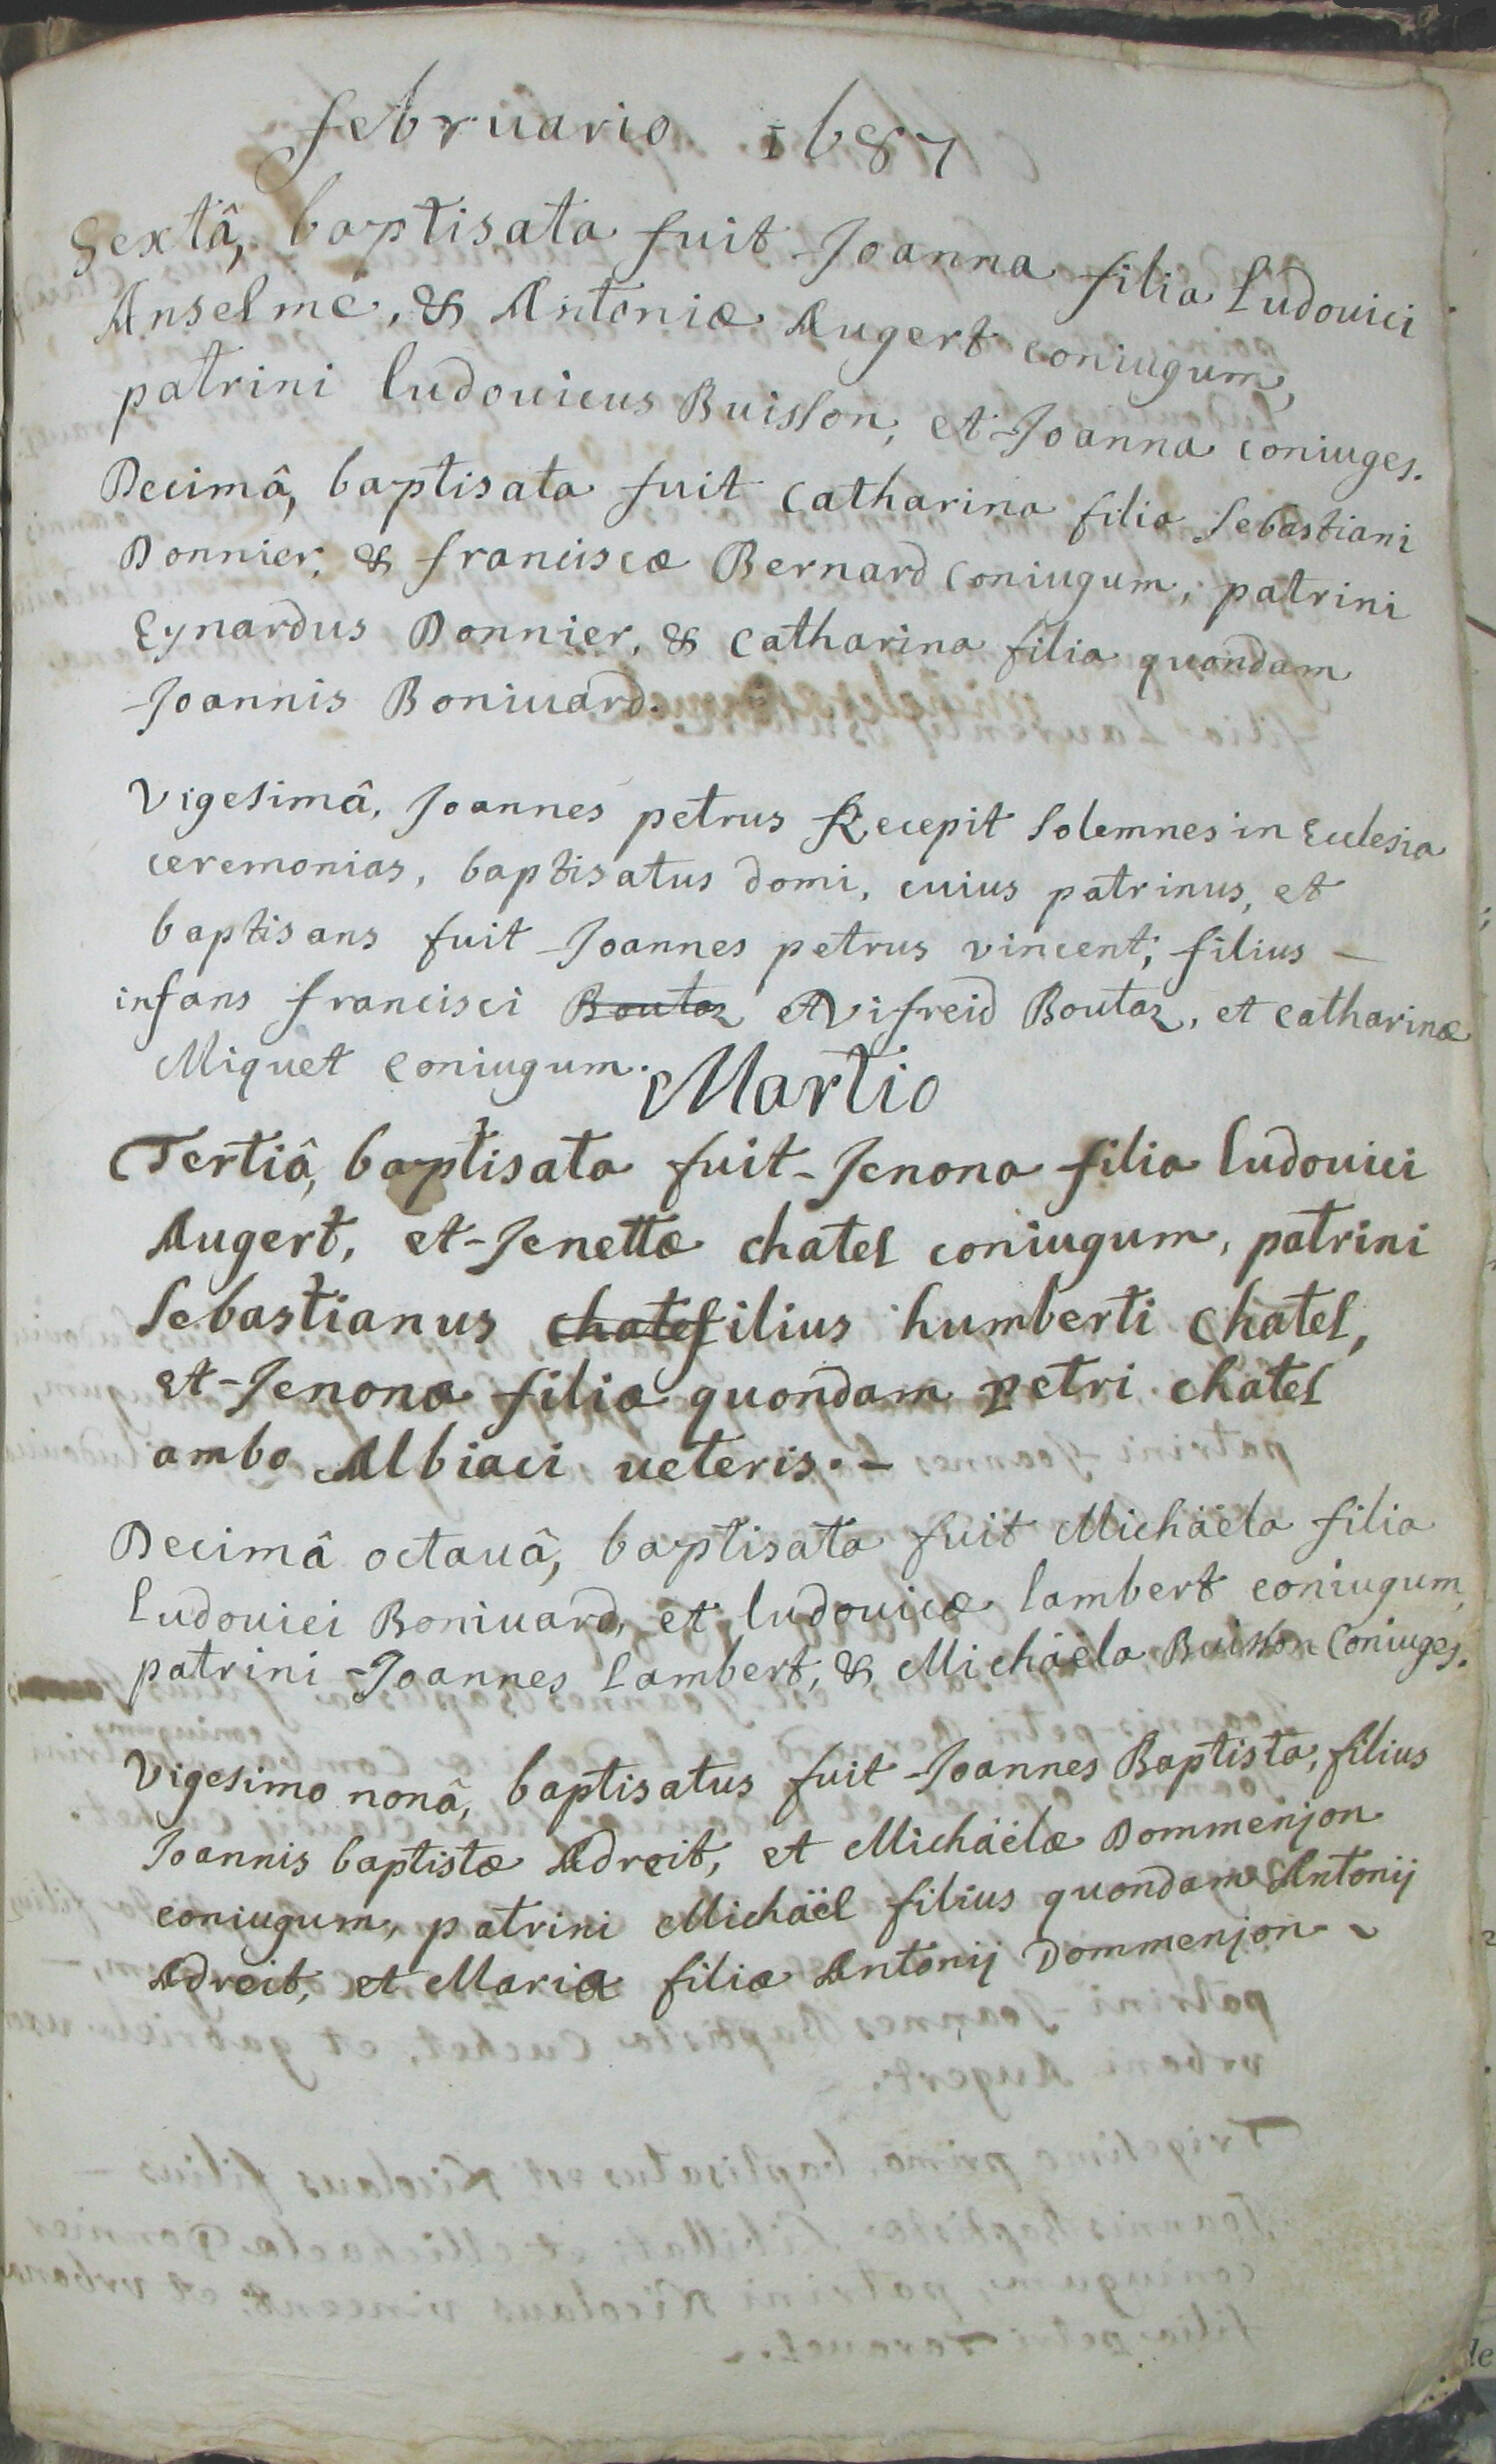 februario 1687
Sextâ, baptisata fuit Joanna filia Ludouici
Anselme, & Antoniæ Augert coniugum,
patrini ludouicus Buisson, et Joanna coniuges.
Decimâ, baptisata fuit Catharina filia Sebastiani
Donnier, & franciscæ Bernard coniugum, patrini
Eynardus Donnier, & Catharina filia quondam
Joannis Boniuard.
Vigesimâ, Joannes petrus Recepit solemnes in Ecclesia
ceremonias, baptisatus domi, cuius patrinus, et
baptisans fuit Joannes petrus vincent, filius —
infans francisci Boutaz Vifreid Boutaz, et Catharinæ
Miquet coniugum.
Martio
Tertiâ, baptisata fuit Jenona filia ludouici
Augert, et Jenettæ chatel coniugum, patrini
Sebastianus chatel filius humberti Chatel,
et Jenona filia quondam petri chatel
ambo Albiaci ueteris. -
Decimâ octauâ, baptisata fuit Michäela filia
Ludouici Boniuard, et ludouicæ lambert coniugum,
patrini Joannes Lambert, & Michäela Buisson Coniuges.
Vigesima nonâ, baptisatus fuit Joannes Baptista, filius
Joannis baptistæ Adroit, et Michäelæ Dommenjon
coniugum, patrini Michäël filius quondam Antonij
Adroit, et Maria filia Antonij Dommenjon -